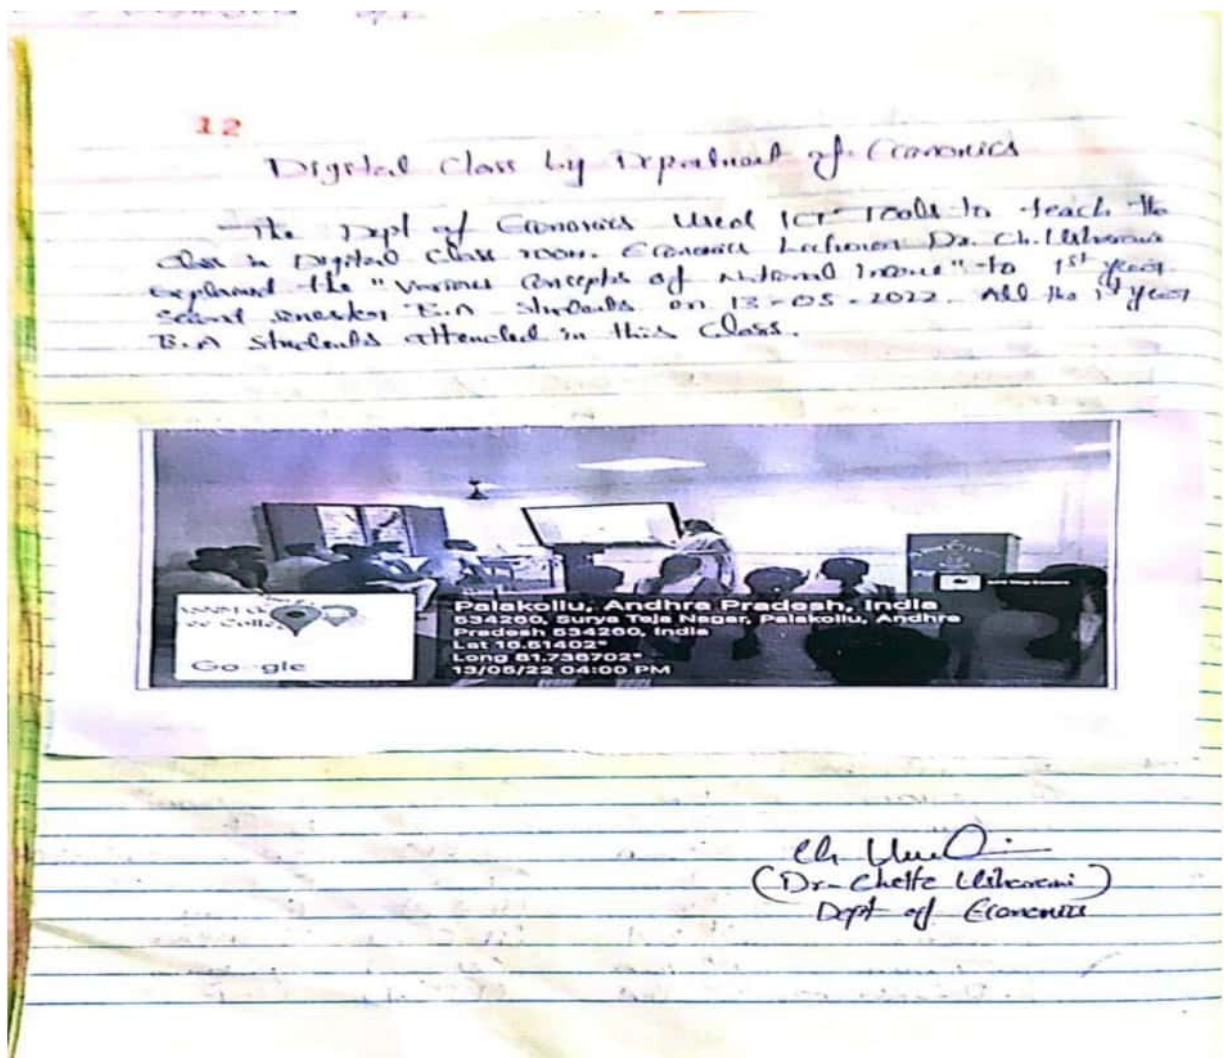 12
Digital Class by Department of Economics
The Dept of Economics Used ICT Tools to teach the
class in Digital Class room. Economics Lecturer Dr. Ch. Usharani
explained the "Various Concepts of National Income" to 1st year
second semester B.A students on 13-05-2022. All the 1st year
B.A students attended in this Class.
Palakollu, Andhra Pradesh, India
534260, Surya Teja Nagar, Palakollu, Andhra
Pradesh 534260, India
Lat 16.51402°
Long 81.736702°
13/05/22 04:00 PM
Google
(Dr. Chette Usharani)
Dept of Economics